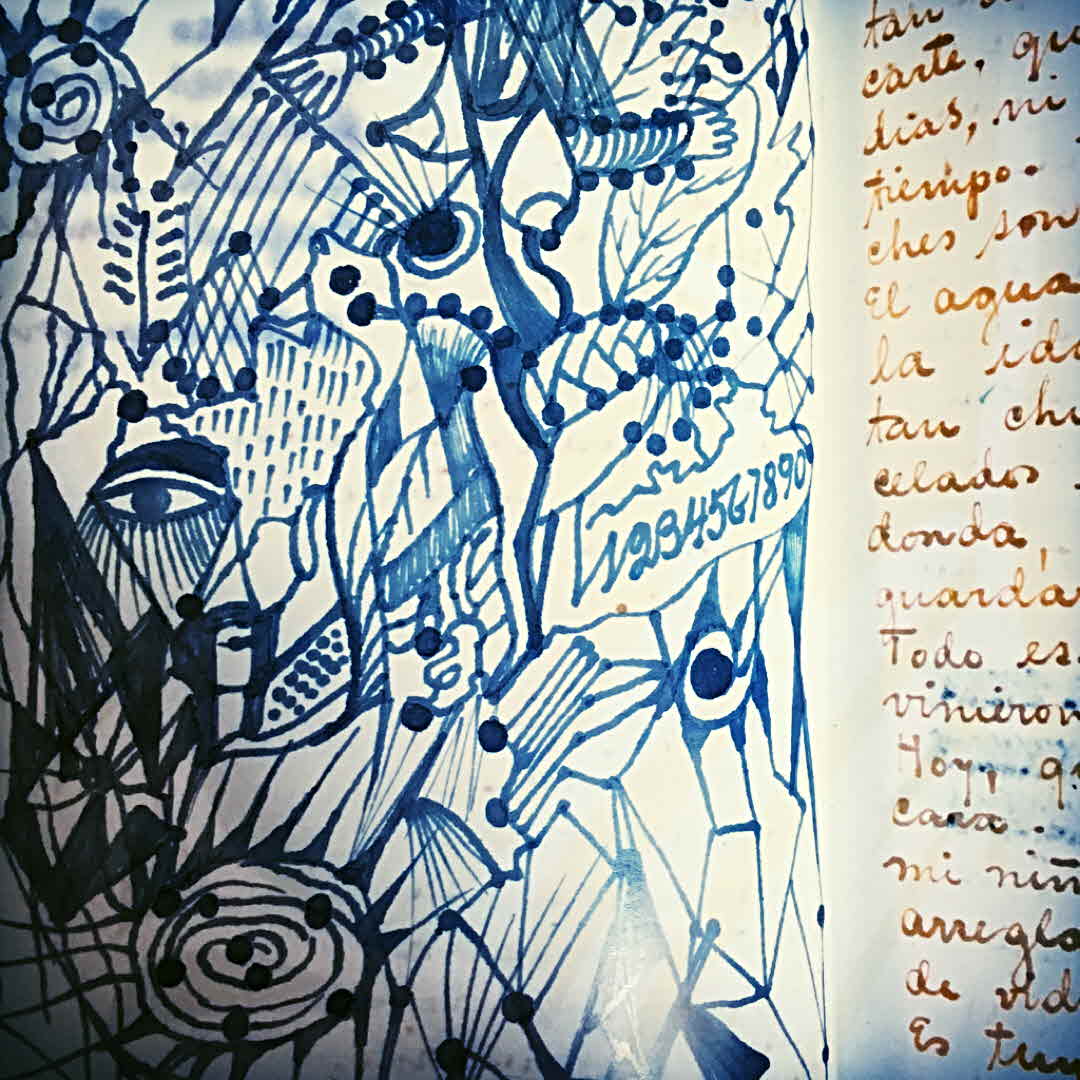 1234567890
tan
carte, qu
dias, ni
tiempo.
ches son
El agua
la ida
tan chi
celados
donda,
guardár
Todo es
vinieron
Hoy, qu
cara.
mi niñ
arreglo
de vid
Es tum